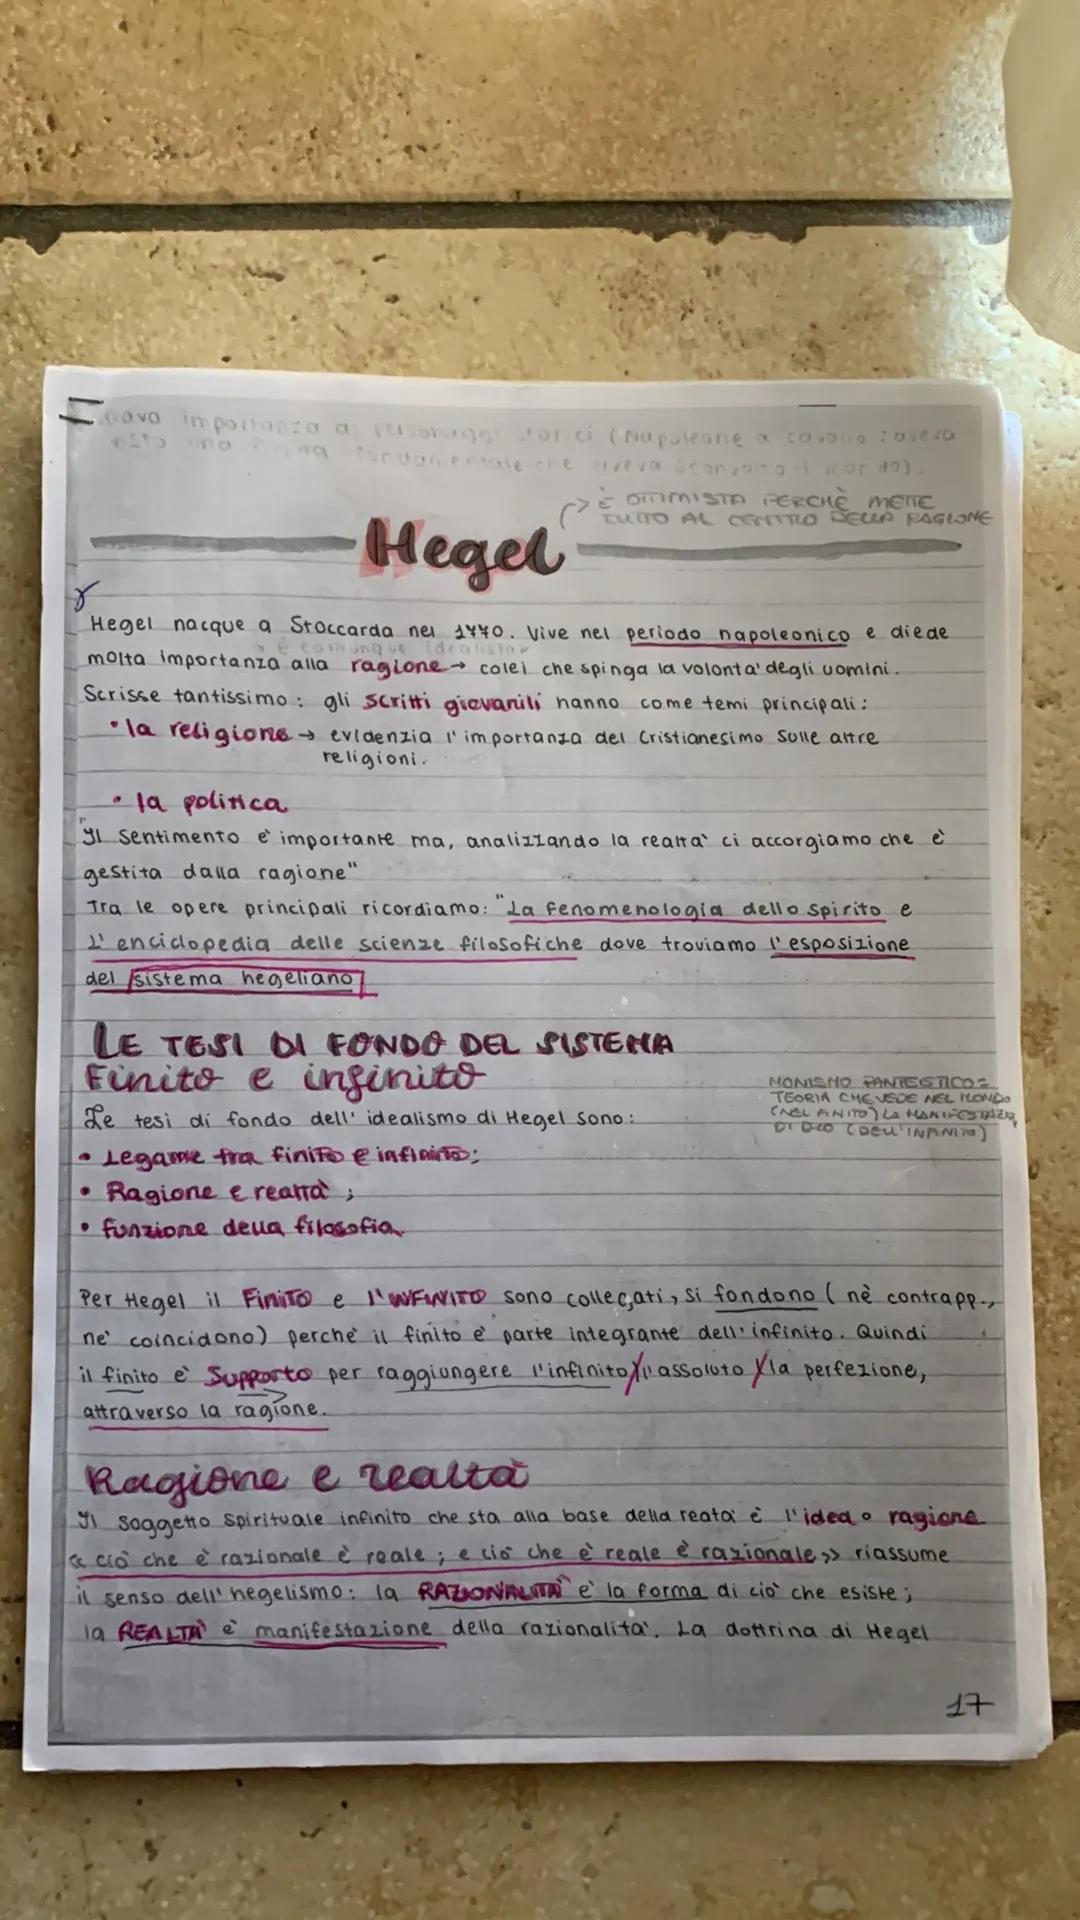 dava importanza a personaggi storici (Napoleone a cavallo : aveva
visto una figura fondamentale che aveva sconvolto il mondo).
È OTTIMISTA PERCHÈ METTE
TUTTO AL CENTRO DELLA RAGIONE
Hegel
Hegel nacque a Stoccarda nel 1770. Vive nel periodo napoleonico e diede
è comunque idealista
molta importanza alla ragione → colei che spinga la volontà degli uomini.
Scrisse tantissimo: gli scritti giovanili hanno come temi principali:
• la religione → evidenzia l'importanza del Cristianesimo sulle altre
religioni.
• la politica
"Il sentimento è importante ma, analizzando la realtà ci accorgiamo che è
gestita dalla ragione"
Tra le opere principali ricordiamo: "La fenomenologia dello spirito e
L'enciclopedia delle scienze filosofiche dove troviamo l'esposizione
del sistema hegeliano
LE TESI DI FONDO DEL SISTEMA
Finito e infinito
MONISMO PANTEISTICO =
TEORIA CHE VEDE NEL MONDO
(NEL FINITO) LA MANIFESTAZIO
DI DIO (DELL'INFINITO)
Le tesi di fondo dell'idealismo di Hegel sono:
• Legame tra finito e infinito;
• Ragione e realtà;
• funzione della filosofia.
Per Hegel il FINITO e l'INFINITO sono collegati, si fondono (nè contrapp.,
nè coincidono) perchè il finito è parte integrante dell'infinito. Quindi
il finito è supporto per raggiungere l'infinito/l'assoluto/la perfezione,
attraverso la ragione.
Ragione e realtà
Il soggetto spirituale infinito che sta alla base della reatà è l'idea o ragione
« ciò che è razionale è reale; e ciò che è reale è razionale,» riassume
il senso dell'hegelismo: la RAZIONALITÀ è la forma di ciò che esiste;
la REALTÀ è manifestazione della razionalità. La dottrina di Hegel
17